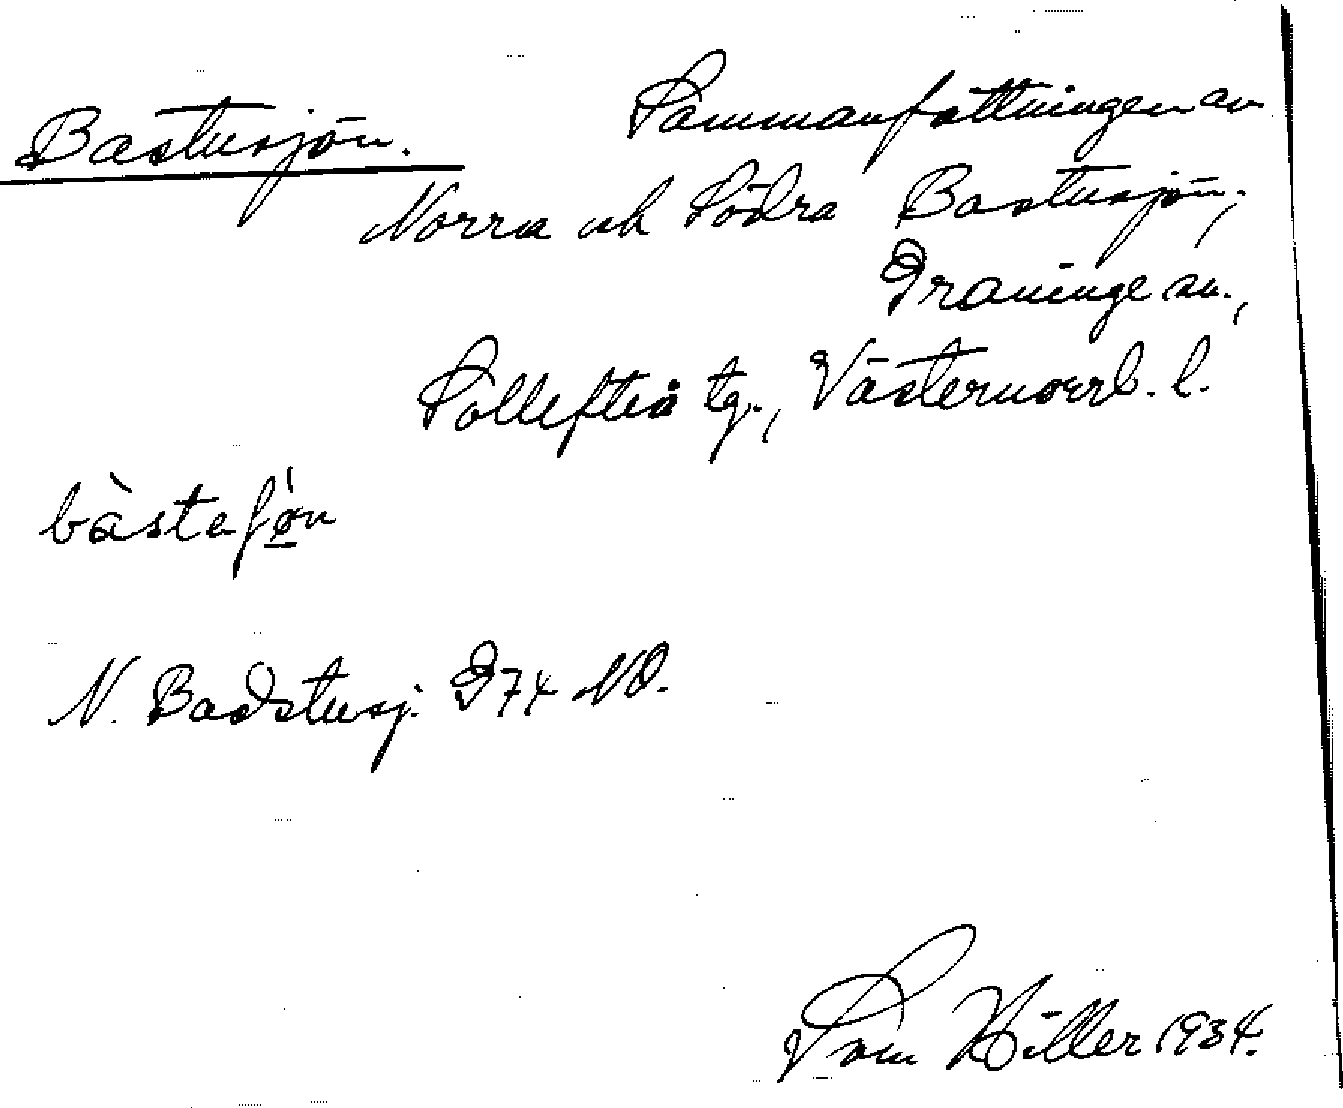 Bastusjön.
Sammanfattningen av
Norra och Södra Bastusjön;
Graninge sn.,
Sollefteå tg., Västernorrl. l.
bàstaʃǿ̱n
N. Badstusj. G74 NO.
1934.